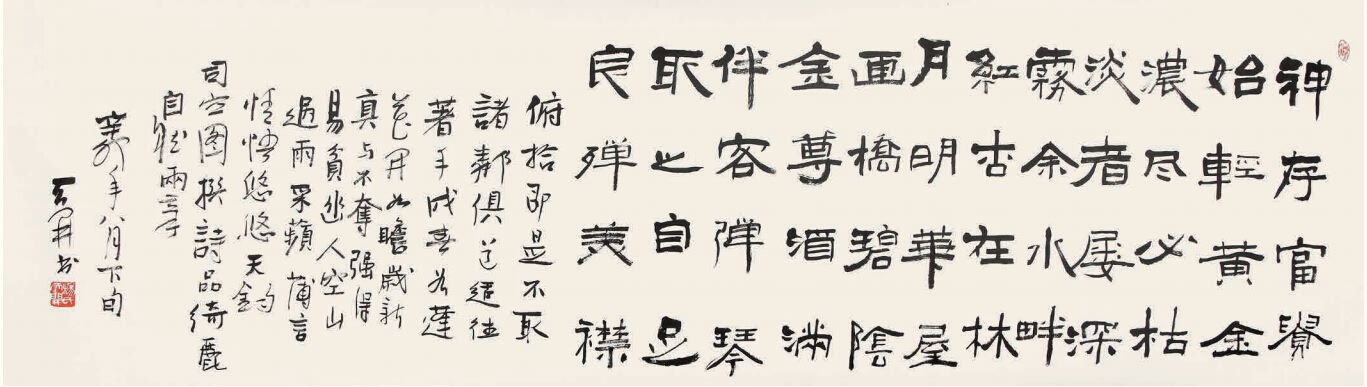 神存富貴
始輕黃金
濃尽必枯
淡者屡深
霧余水畔
紅杏在林
月明華屋
画橋碧陰
金尊酒満
伴客弹琴
取之自足
良殚美襟
俯拾即是不取
諸鄰俱道適往
著手成春如逢
花開如瞻歲新
真与不奪强得
易貧幽人空山
過雨采蘋薄言
情悟悠悠天鈞
司空图撰詩品绮麗
自然兩章
年八月下旬
书